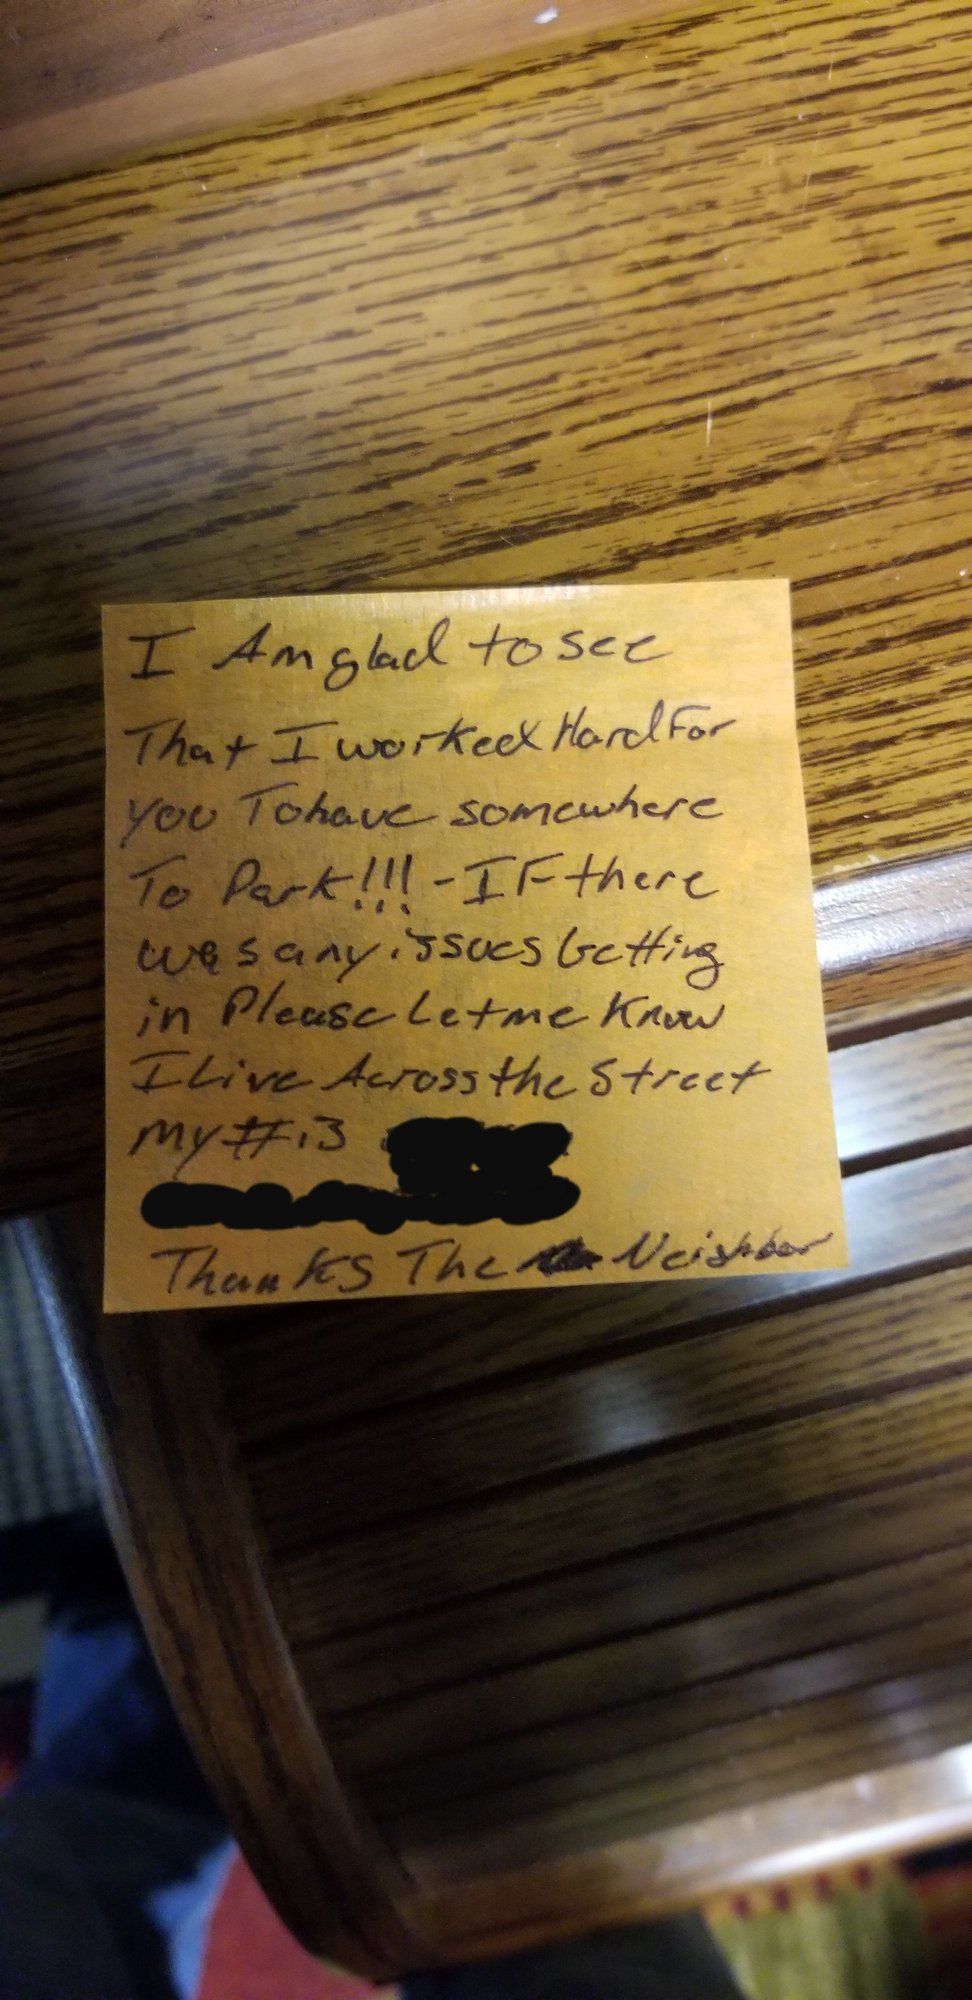 I Am glad to see
That I worked Hard For
you To have somewhere
To Park!!! - IF there
was any issues Getting
in Please Let me Know
I Live Across the Street
my # is
Thanks The Neighbor